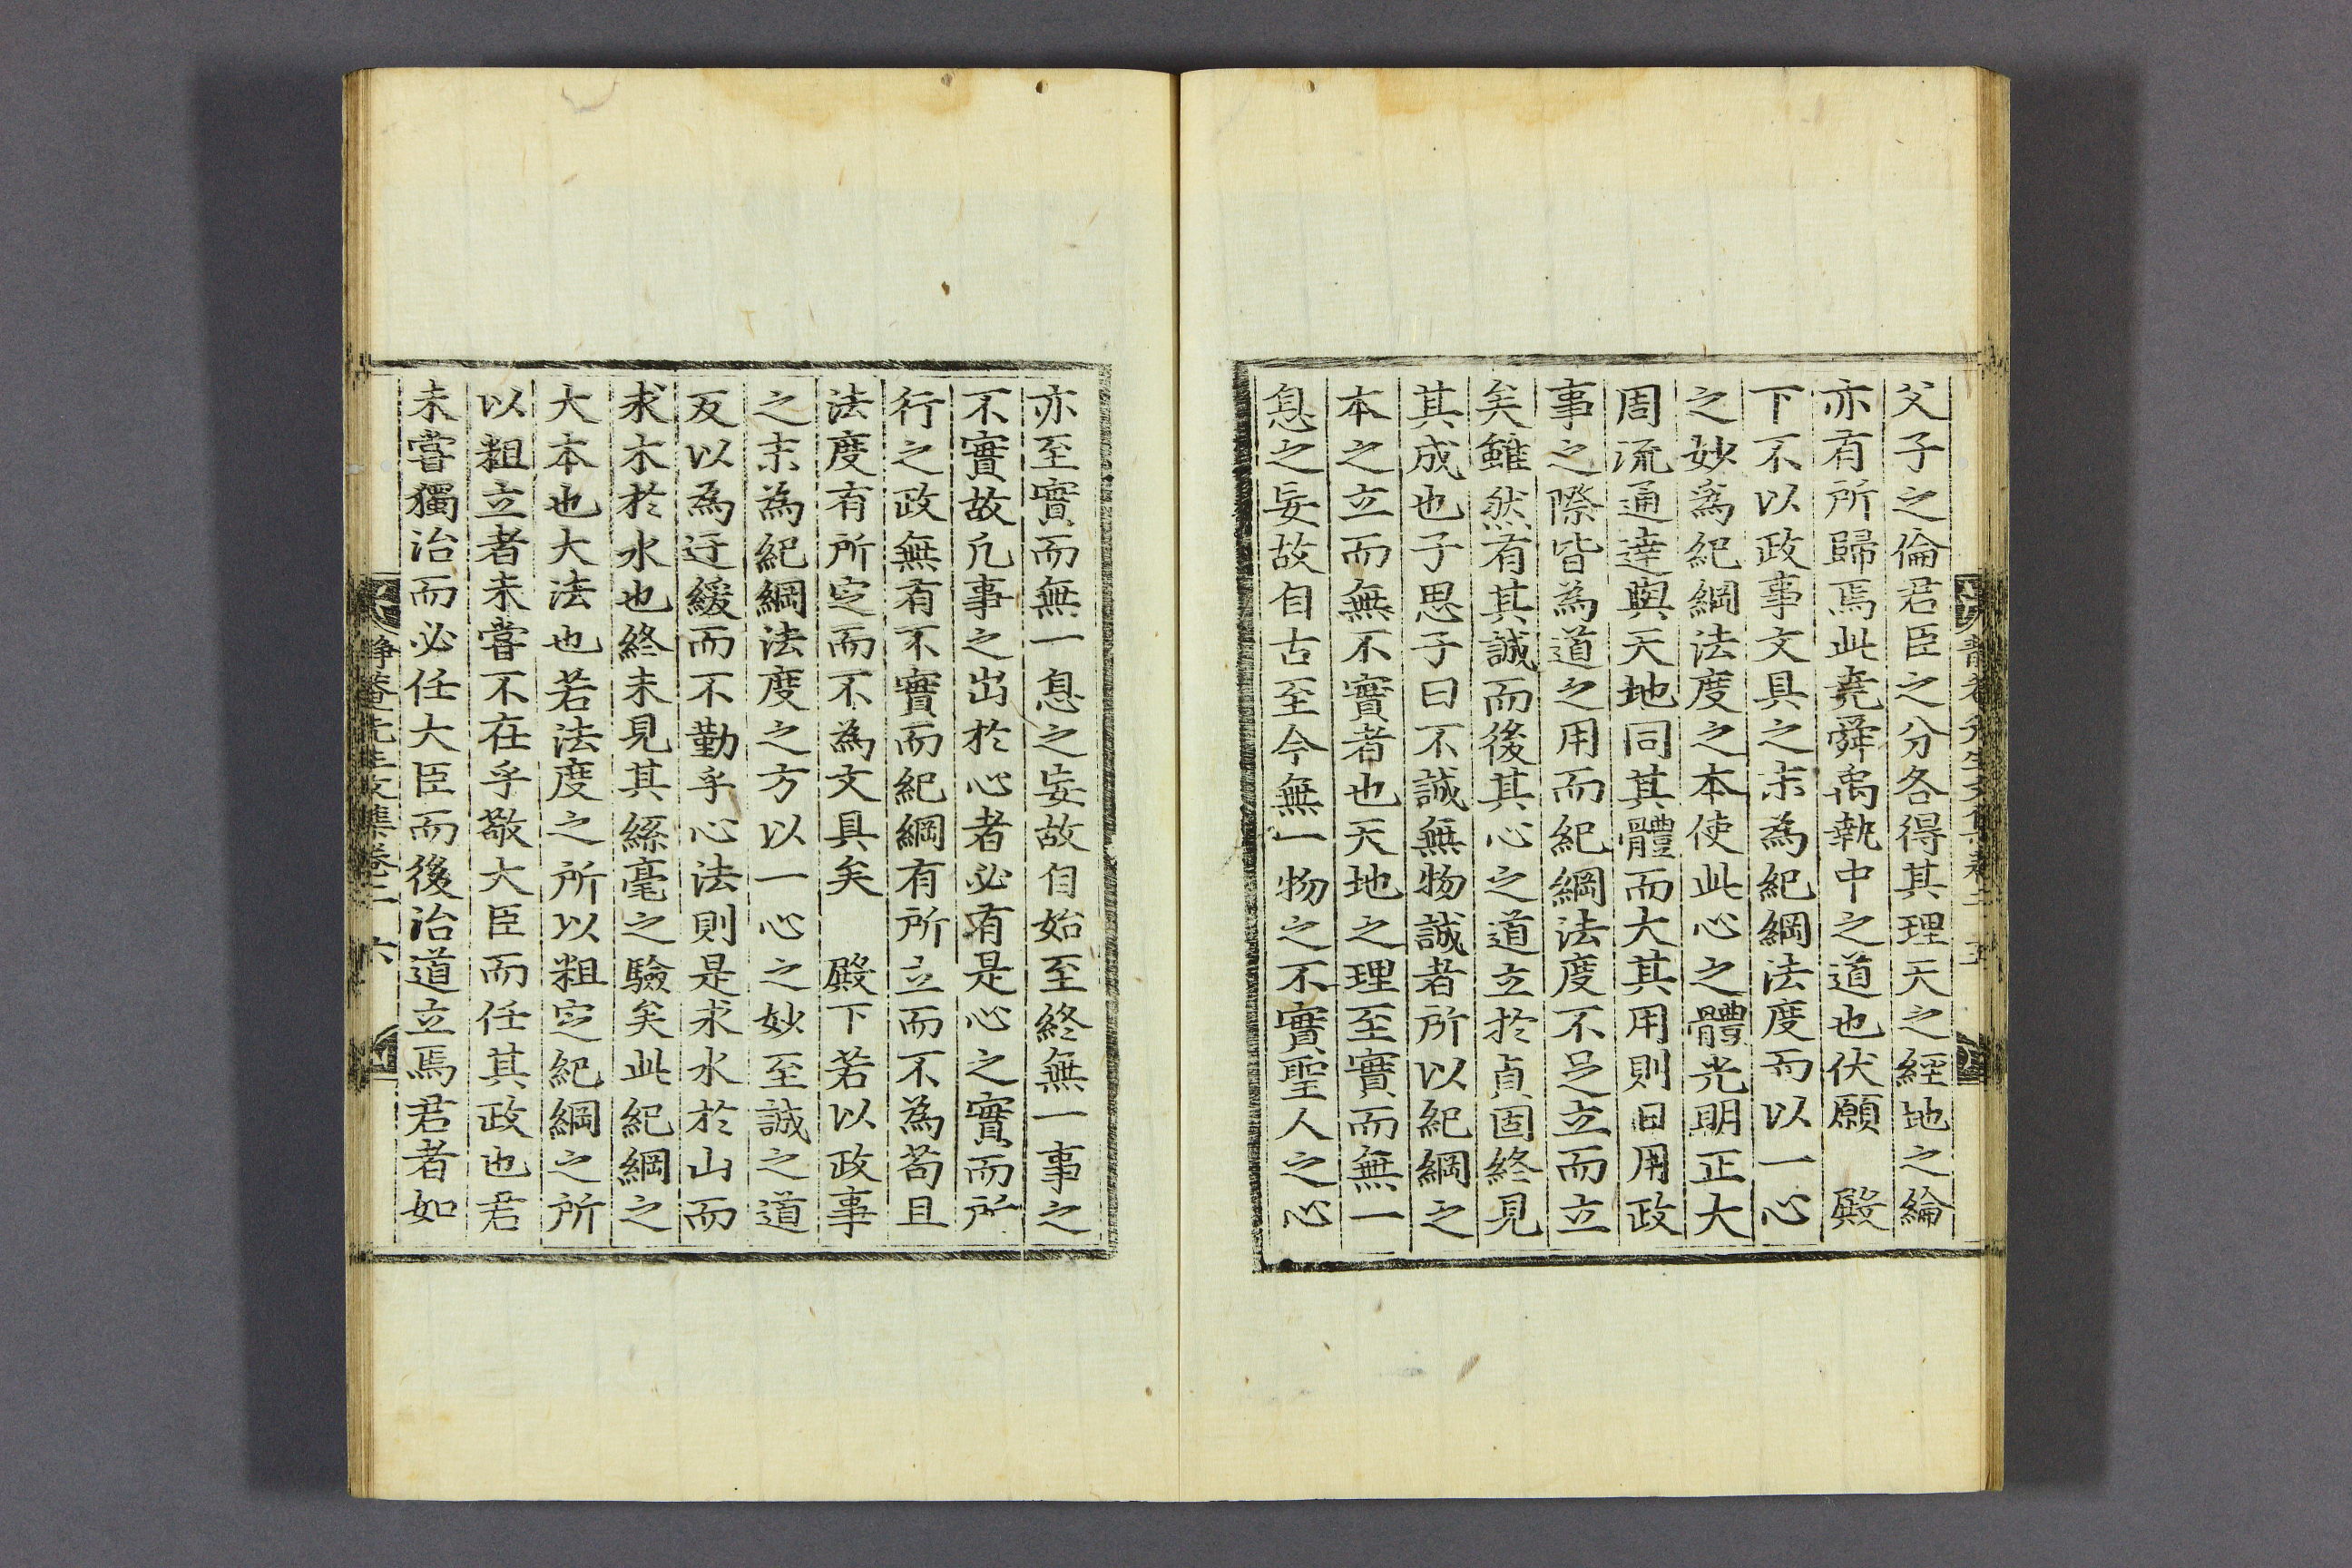 父子之倫君臣之分各得其理天之經地之綸
亦有所歸焉此堯舜禹執中之道也伏願　殿
下不以政事文具之末為紀綱法度而以一心
之妙爲紀綱法度之本使此心之體光明正大
周流通達與天地同其體而大其用則日用政
事之際皆為道之用而紀綱法度不足立而立
矣雖然有其誠而後其心之道立於貞固終見
其成也子思子曰不誠無物誠者所以紀綱之
本之立而無不實者也天地之理至實而無一
息之妄故自古至今無一物之不實聖人之心
亦至實而無一息之妄故自始至終無一事之
不實故凡事之出於心者必有是心之實而所
行之政無有不實而紀綱有所立而不為苟且
法度有所定而不為文具矣　殿下若以政事
之末為紀綱法度之方以一心之妙至誠之道
反以為迂緩而不勤乎心法則是求水於山而
求木於水也終未見其絲毫之驗矣此紀綱之
大本也大法也若法度之所以粗定紀綱之所
以粗立者未嘗不在乎敬大臣而任其政也君
未嘗獨治而必任大臣而後治道立焉君者如
靜菴先生文集卷二　六